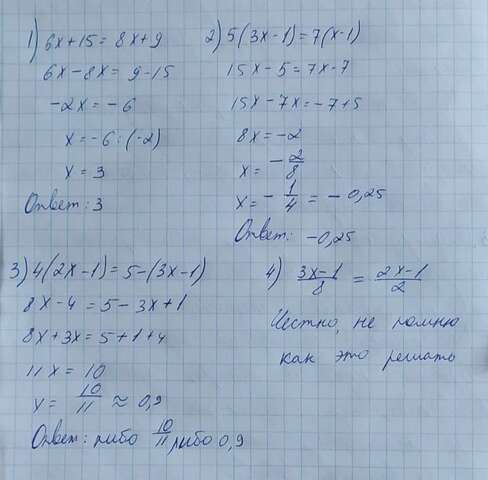 1) 6x+15 = 8x+9
6x-8x = 9-15
-2x = -6
x = -6 : (-2)
x = 3
Ответ: 3
2) 5(3x-1) = 7(x-1)
15x-5 = 7x-7
15x-7x = -7+5
8x = -2
x = -2/8
x = -1/4 = -0,25
Ответ: -0,25
3) 4(2x-1) = 5-(3x-1)
8x-4 = 5-3x+1
8x+3x = 5+1+4
11x = 10
x = 10/11 ≈ 0,9
Ответ: либо 10/11, либо 0,9
4) 3x-1/8 = 2x-1/2
Честно, не помню
как это решать